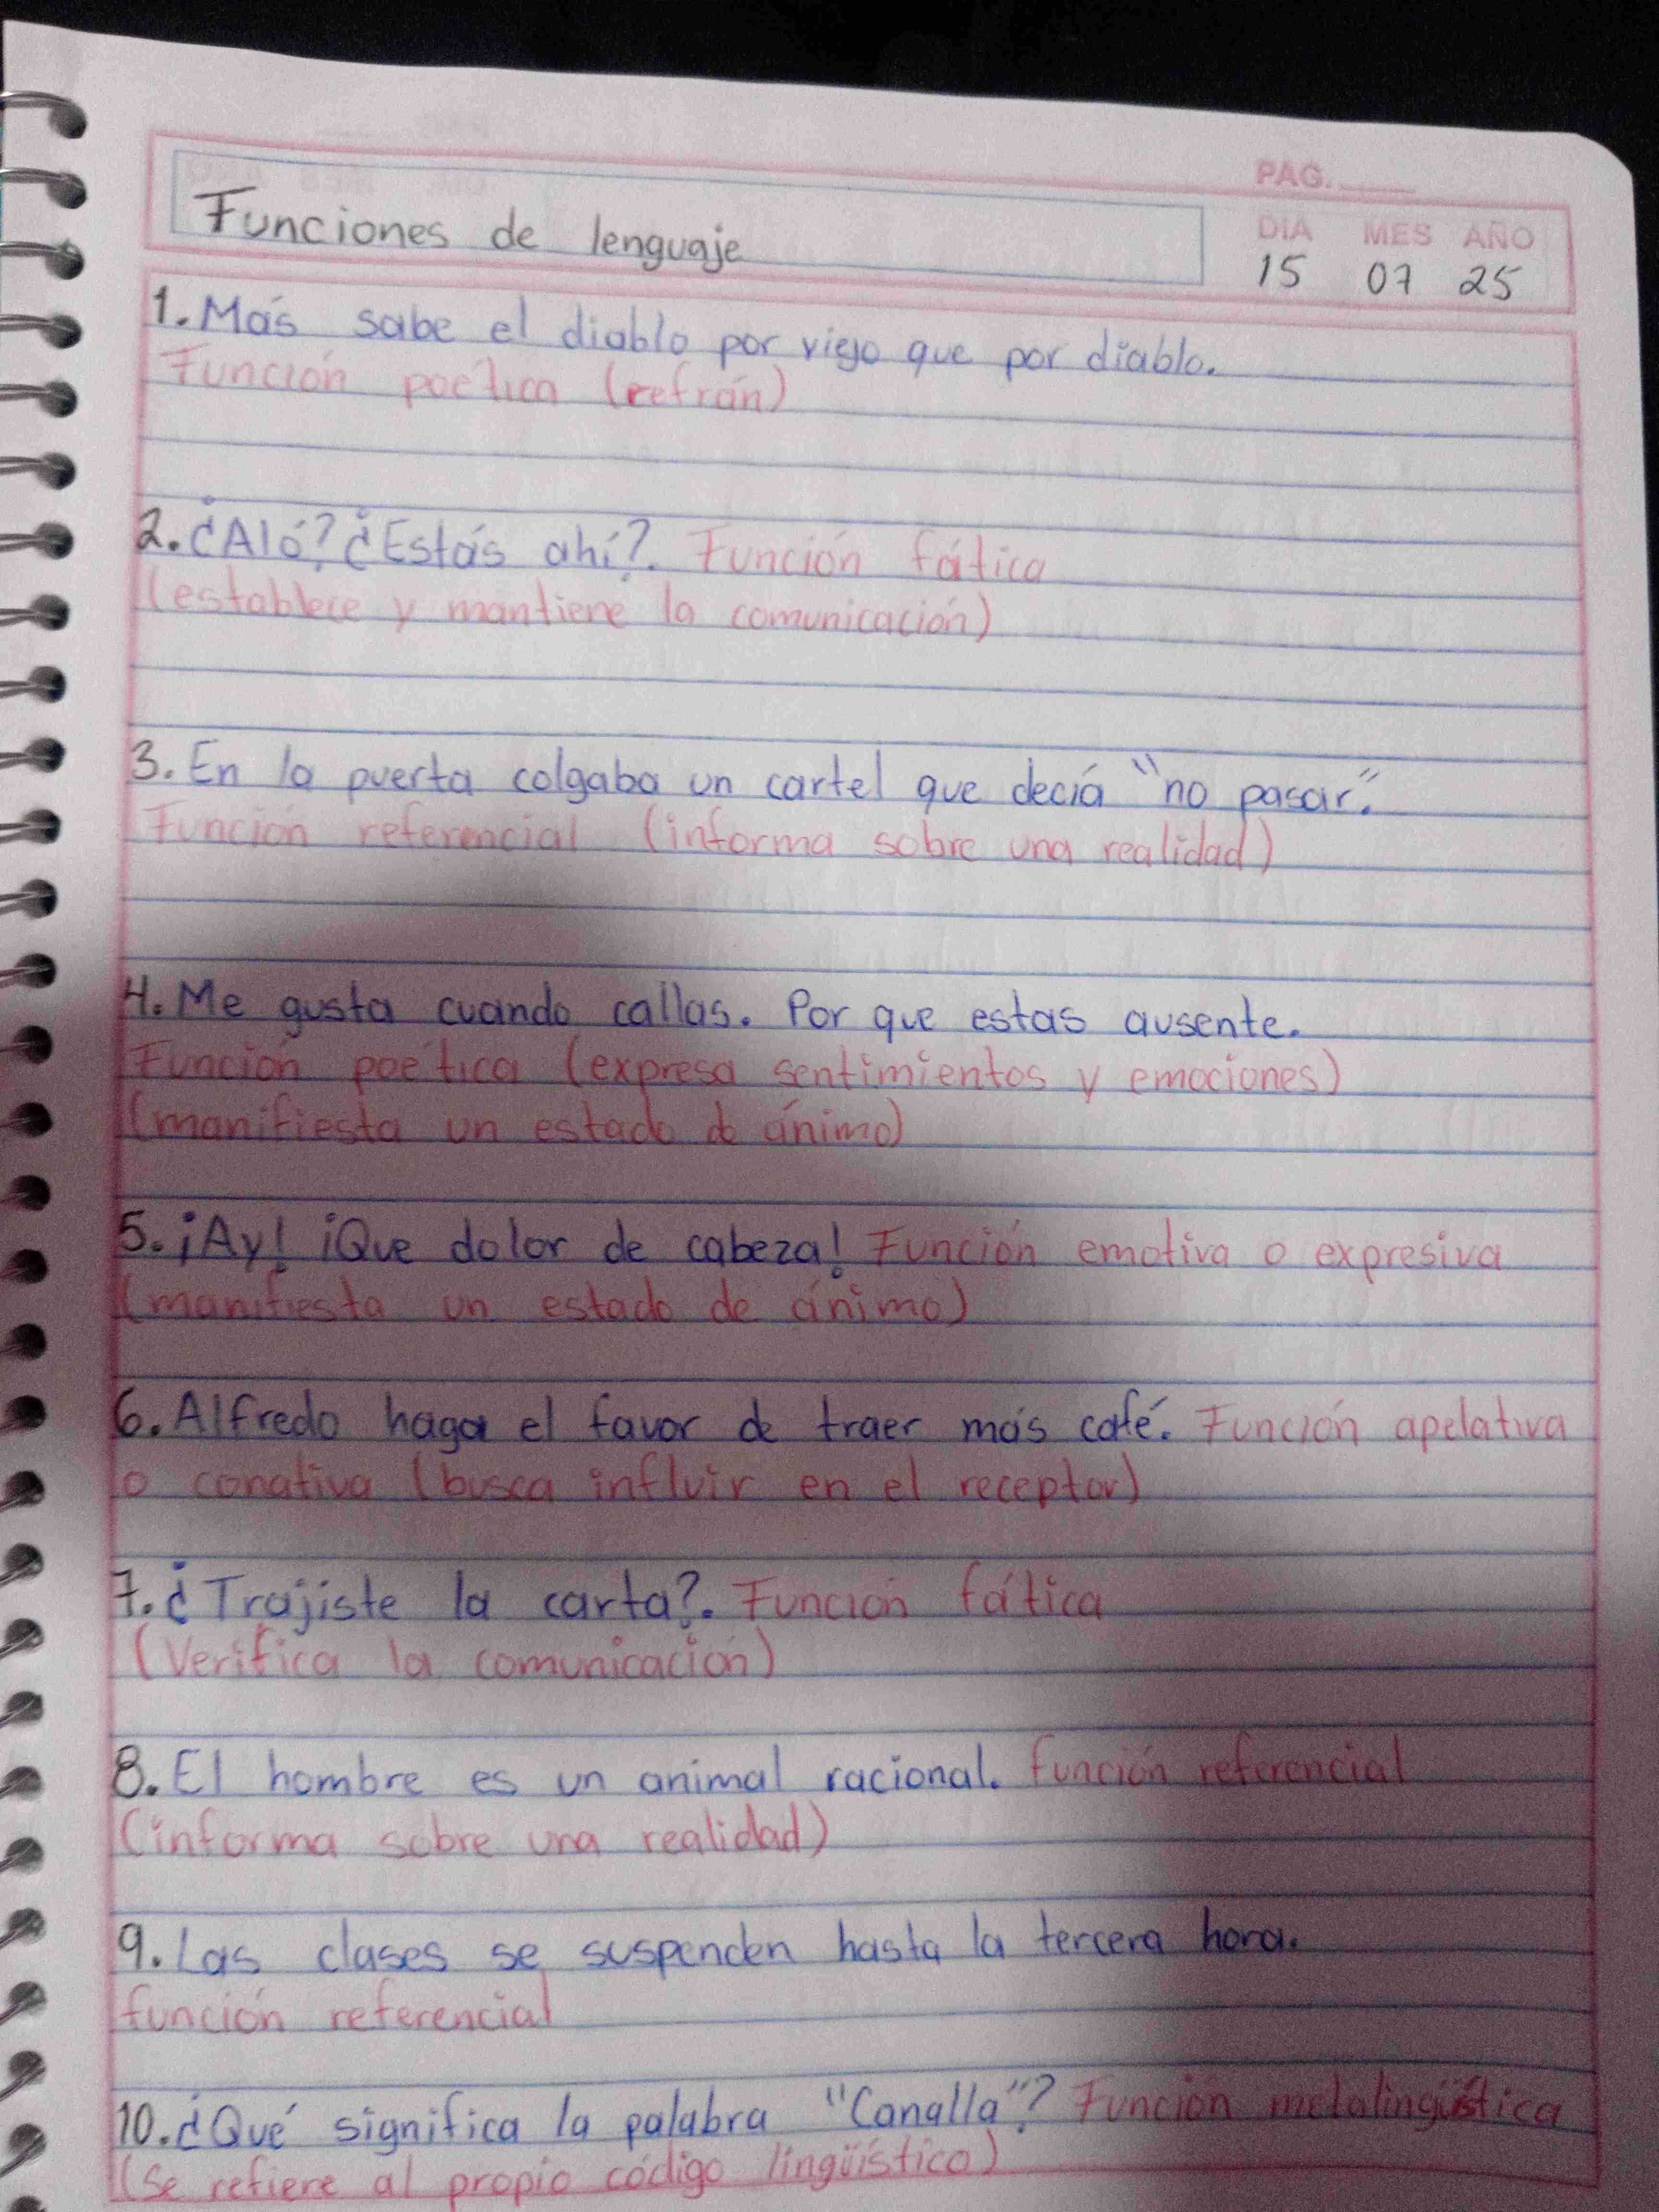 PAG.
Funciones de lenguaje
DIA MES AÑO
15 07 25
1. Más sabe el diablo por viejo que por diablo.
Función poética (refrán)
2. ¿Aló? ¿Estás ahí?. Función fática
(establece y mantiene la comunicación)
3. En la puerta colgaba un cartel que decía "no pasar".
Función referencial (informa sobre una realidad)
4. Me gusta cuando callas. Por que estas ausente.
Función poética (expresa sentimientos y emociones)
(manifiesta un estado de ánimo)
5. ¡Ay! ¡Que dolor de cabeza! Función emotiva o expresiva
(manifiesta un estado de ánimo)
6. Alfredo haga el favor de traer más café. Función apelativa
o conativa (busca influir en el receptor)
7. ¿Trajiste la carta?. Función fática
(Verifica la comunicación)
8. El hombre es un animal racional. función referencial
(informa sobre una realidad)
9. Las clases se suspenden hasta la tercera hora.
función referencial
10. ¿Qué significa la palabra "Canalla"? Función metalingüística
(se refiere al propio código lingüístico)